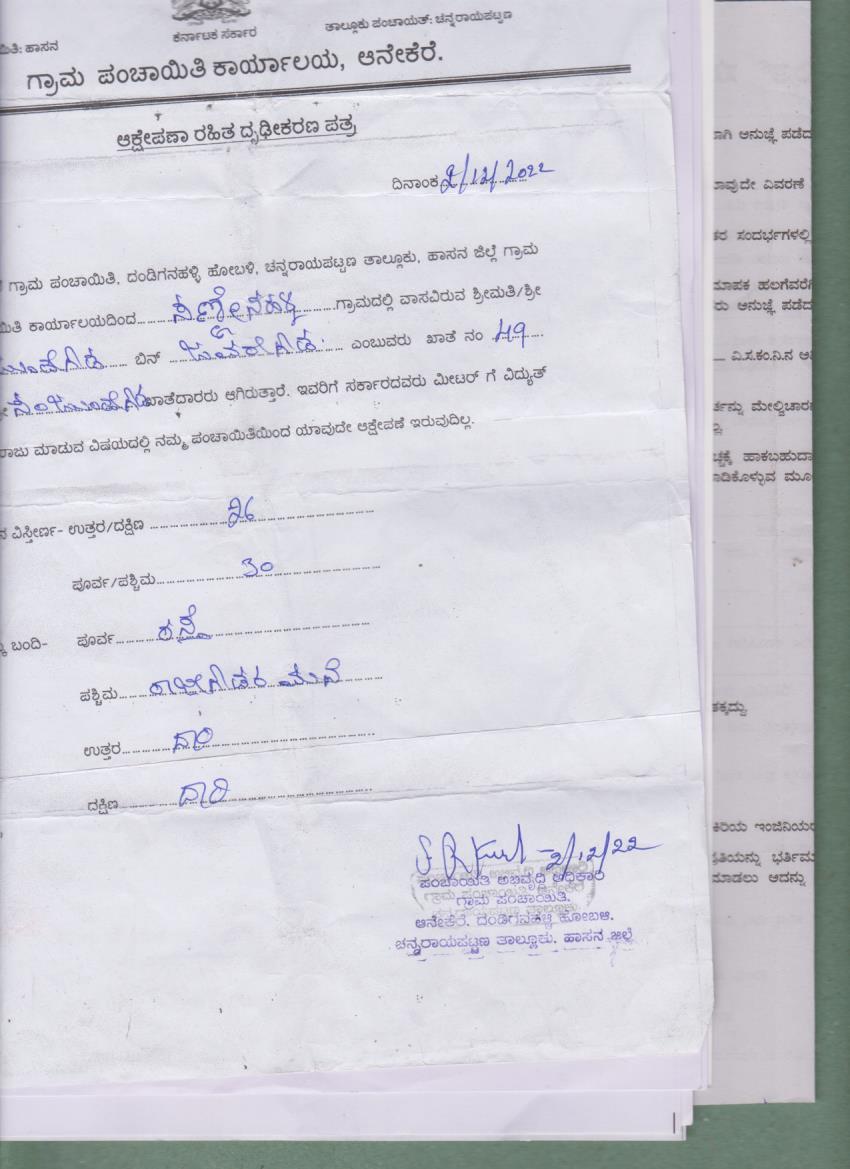 ಕರ್ನಾಟಕ ಸರ್ಕಾರ
ತಾಲ್ಲೂಕು ಪಂಚಾಯತ್: ಚನ್ನರಾಯಪಟ್ಟಣ
ಮಿತಿ: ಹಾಸನ
ಗ್ರಾಮ ಪಂಚಾಯಿತಿ ಕಾರ್ಯಾಲಯ, ಆನೇಕೆರೆ.
ಆಕ್ಷೇಪಣಾ ರಹಿತ ದೃಢೀಕರಣ ಪತ್ರ
ದಿನಾಂಕ 2/12/2022
ಗ್ರಾಮ ಪಂಚಾಯಿತಿ, ದಂಡಿಗನಹಳ್ಳಿ ಹೋಬಳಿ, ಚನ್ನರಾಯಪಟ್ಟಣ ತಾಲ್ಲೂಕು, ಹಾಸನ ಜಿಲ್ಲೆ ಗ್ರಾಮ
ಯಿತಿ ಕಾರ್ಯಾಲಯದಿಂದ ಗ್ರಾಮದಲ್ಲಿ ವಾಸವಿರುವ ಶ್ರೀಮತಿ/ಶ್ರೀ
ಬಿನ್ ಎಂಬುವರು ಖಾತೆ ನಂ 49
ಖಾತೆದಾರರು ಆಗಿರುತ್ತಾರೆ. ಇವರಿಗೆ ಸರ್ಕಾರದವರು ಮೀಟರ್ ಗೆ ವಿದ್ಯುತ್
ರಾಬು ಮಾಡುವ ವಿಷಯದಲ್ಲಿ ನಮ್ಮ ಪಂಚಾಯಿತಿಯಿಂದ ಯಾವುದೇ ಆಕ್ಷೇಪಣೆ ಇರುವುದಿಲ್ಲ.
ನ ವಿಸ್ತೀರ್ಣ- ಉತ್ತರ/ದಕ್ಷಿಣ 26
ಪೂರ್ವ/ಪಶ್ಚಿಮ 30
ಬಂದಿ- ಪೂರ್ವ ರಸ್ತೆ
ಪಶ್ಚಿಮ ಮನೆ
ಉತ್ತರ ದಾರಿ
ದಕ್ಷಿಣ ದಾರಿ
2/12/22
ಪಂಚಾಯಿತಿ ಅಭಿವೃದ್ಧಿ ಅಧಿಕಾರಿ
ಗ್ರಾಮ ಪಂಚಾಯಿತಿ.
ಆನೇಕೆರೆ. ದಂಡಿಗನಹಳ್ಳಿ ಹೋಬಳಿ.
ಚನ್ನರಾಯಪಟ್ಟಣ ತಾಲ್ಲೂಕು. ಹಾಸನ ಜಿಲ್ಲೆ
ಾಗಿ ಅನುಜ್ಞೆ ಪಡೆದ
ಾವುದೇ ವಿವರಣೆ
ಕರ ಸಂದರ್ಭಗಳಲ್ಲಿ
ಮಾಪಕ ಹಲಗೆವರೆಗಿ
ರು ಅನುಜ್ಞೆ ಪಡೆದ
ವಿ.ಸ.ಕಂ.ನಿ.ನ ಅ
ರ್ತನ್ನು ಮೇಲ್ವಿಚಾರ
ಚ್ಚಕ್ಕೆ ಹಾಕಬಹುದಾ
ಾಡಿಕೊಳ್ಳುವ ಮೂ
ತಕ್ಕದ್ದು.
ಕಿರಿಯ ಇಂಜಿನಿಯರ
ಪ್ರತಿಯನ್ನು ಭರ್ತಿಮ
ಮಾಡಲು ಅದನ್ನು